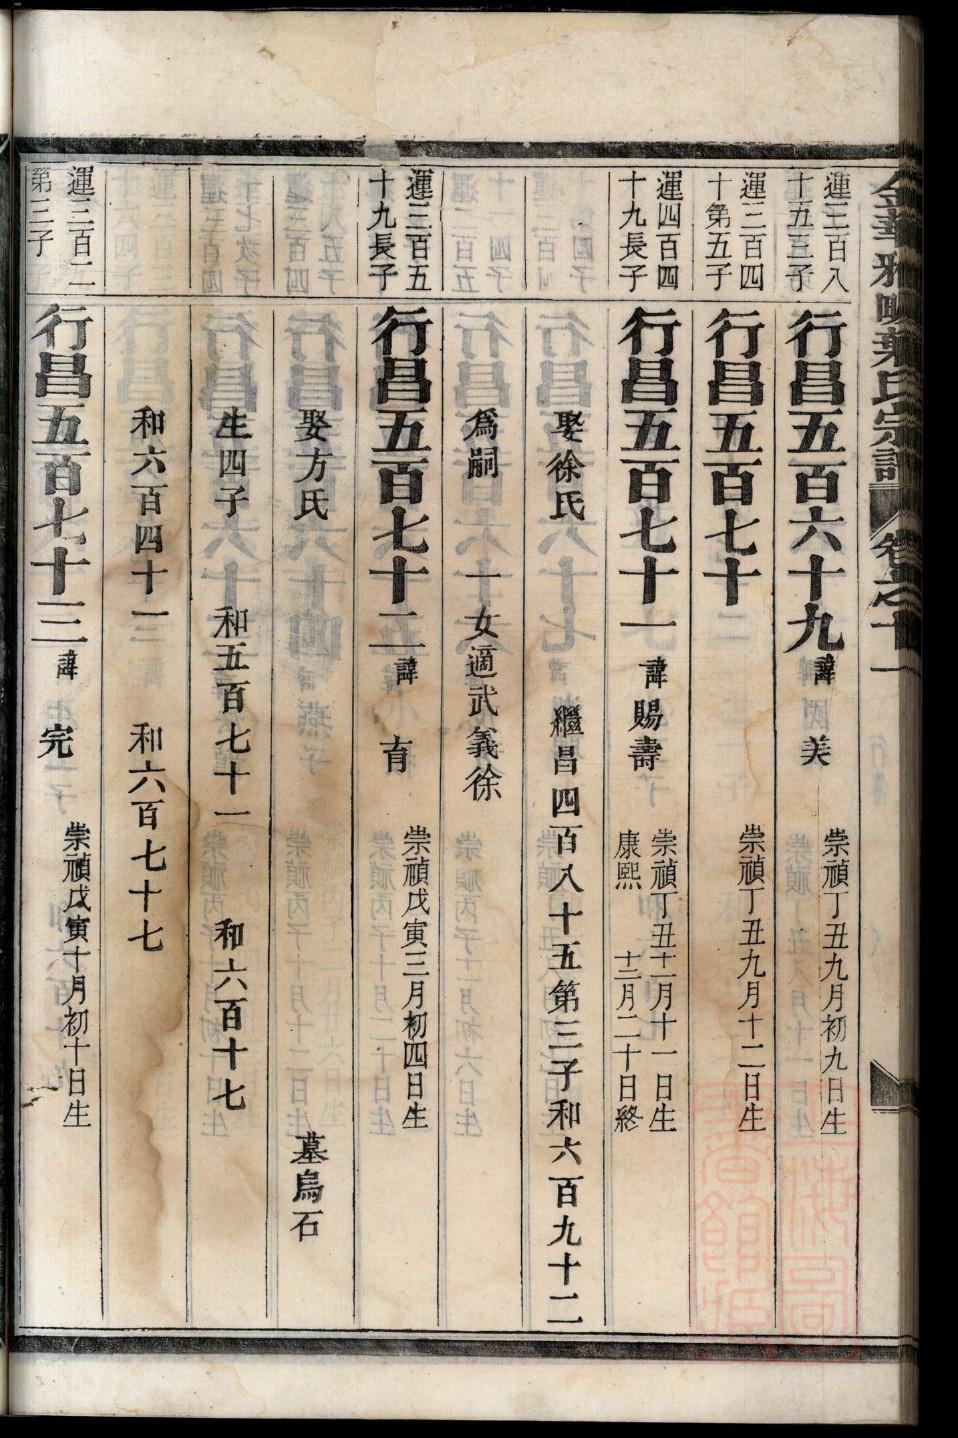 金華雅畈葉氏宗譜 卷之十一
運三百八十五三子
行昌五百六十九 諱 美 崇禎丁丑九月初九日生
運三百四十第五子
行昌五百七十 崇禎丁丑九月十二日生
運四百四十九長子
行昌五百七十一 諱 賜壽 崇禎丁丑十二月十一日生
康熙 十二月二十日終
娶徐氏 繼昌四百八十五第三子和六百九十二
為嗣 一女適武義徐
運三百五十九長子
行昌五百七十二 諱 育 崇禎戊寅三月初四日生
娶方氏 墓烏石
生四子 和五百七十一 和六百十七
和六百四十一 和六百七十七
運三百二 第三子
行昌五百七十三 諱 完 崇禎戊寅十月初十日生